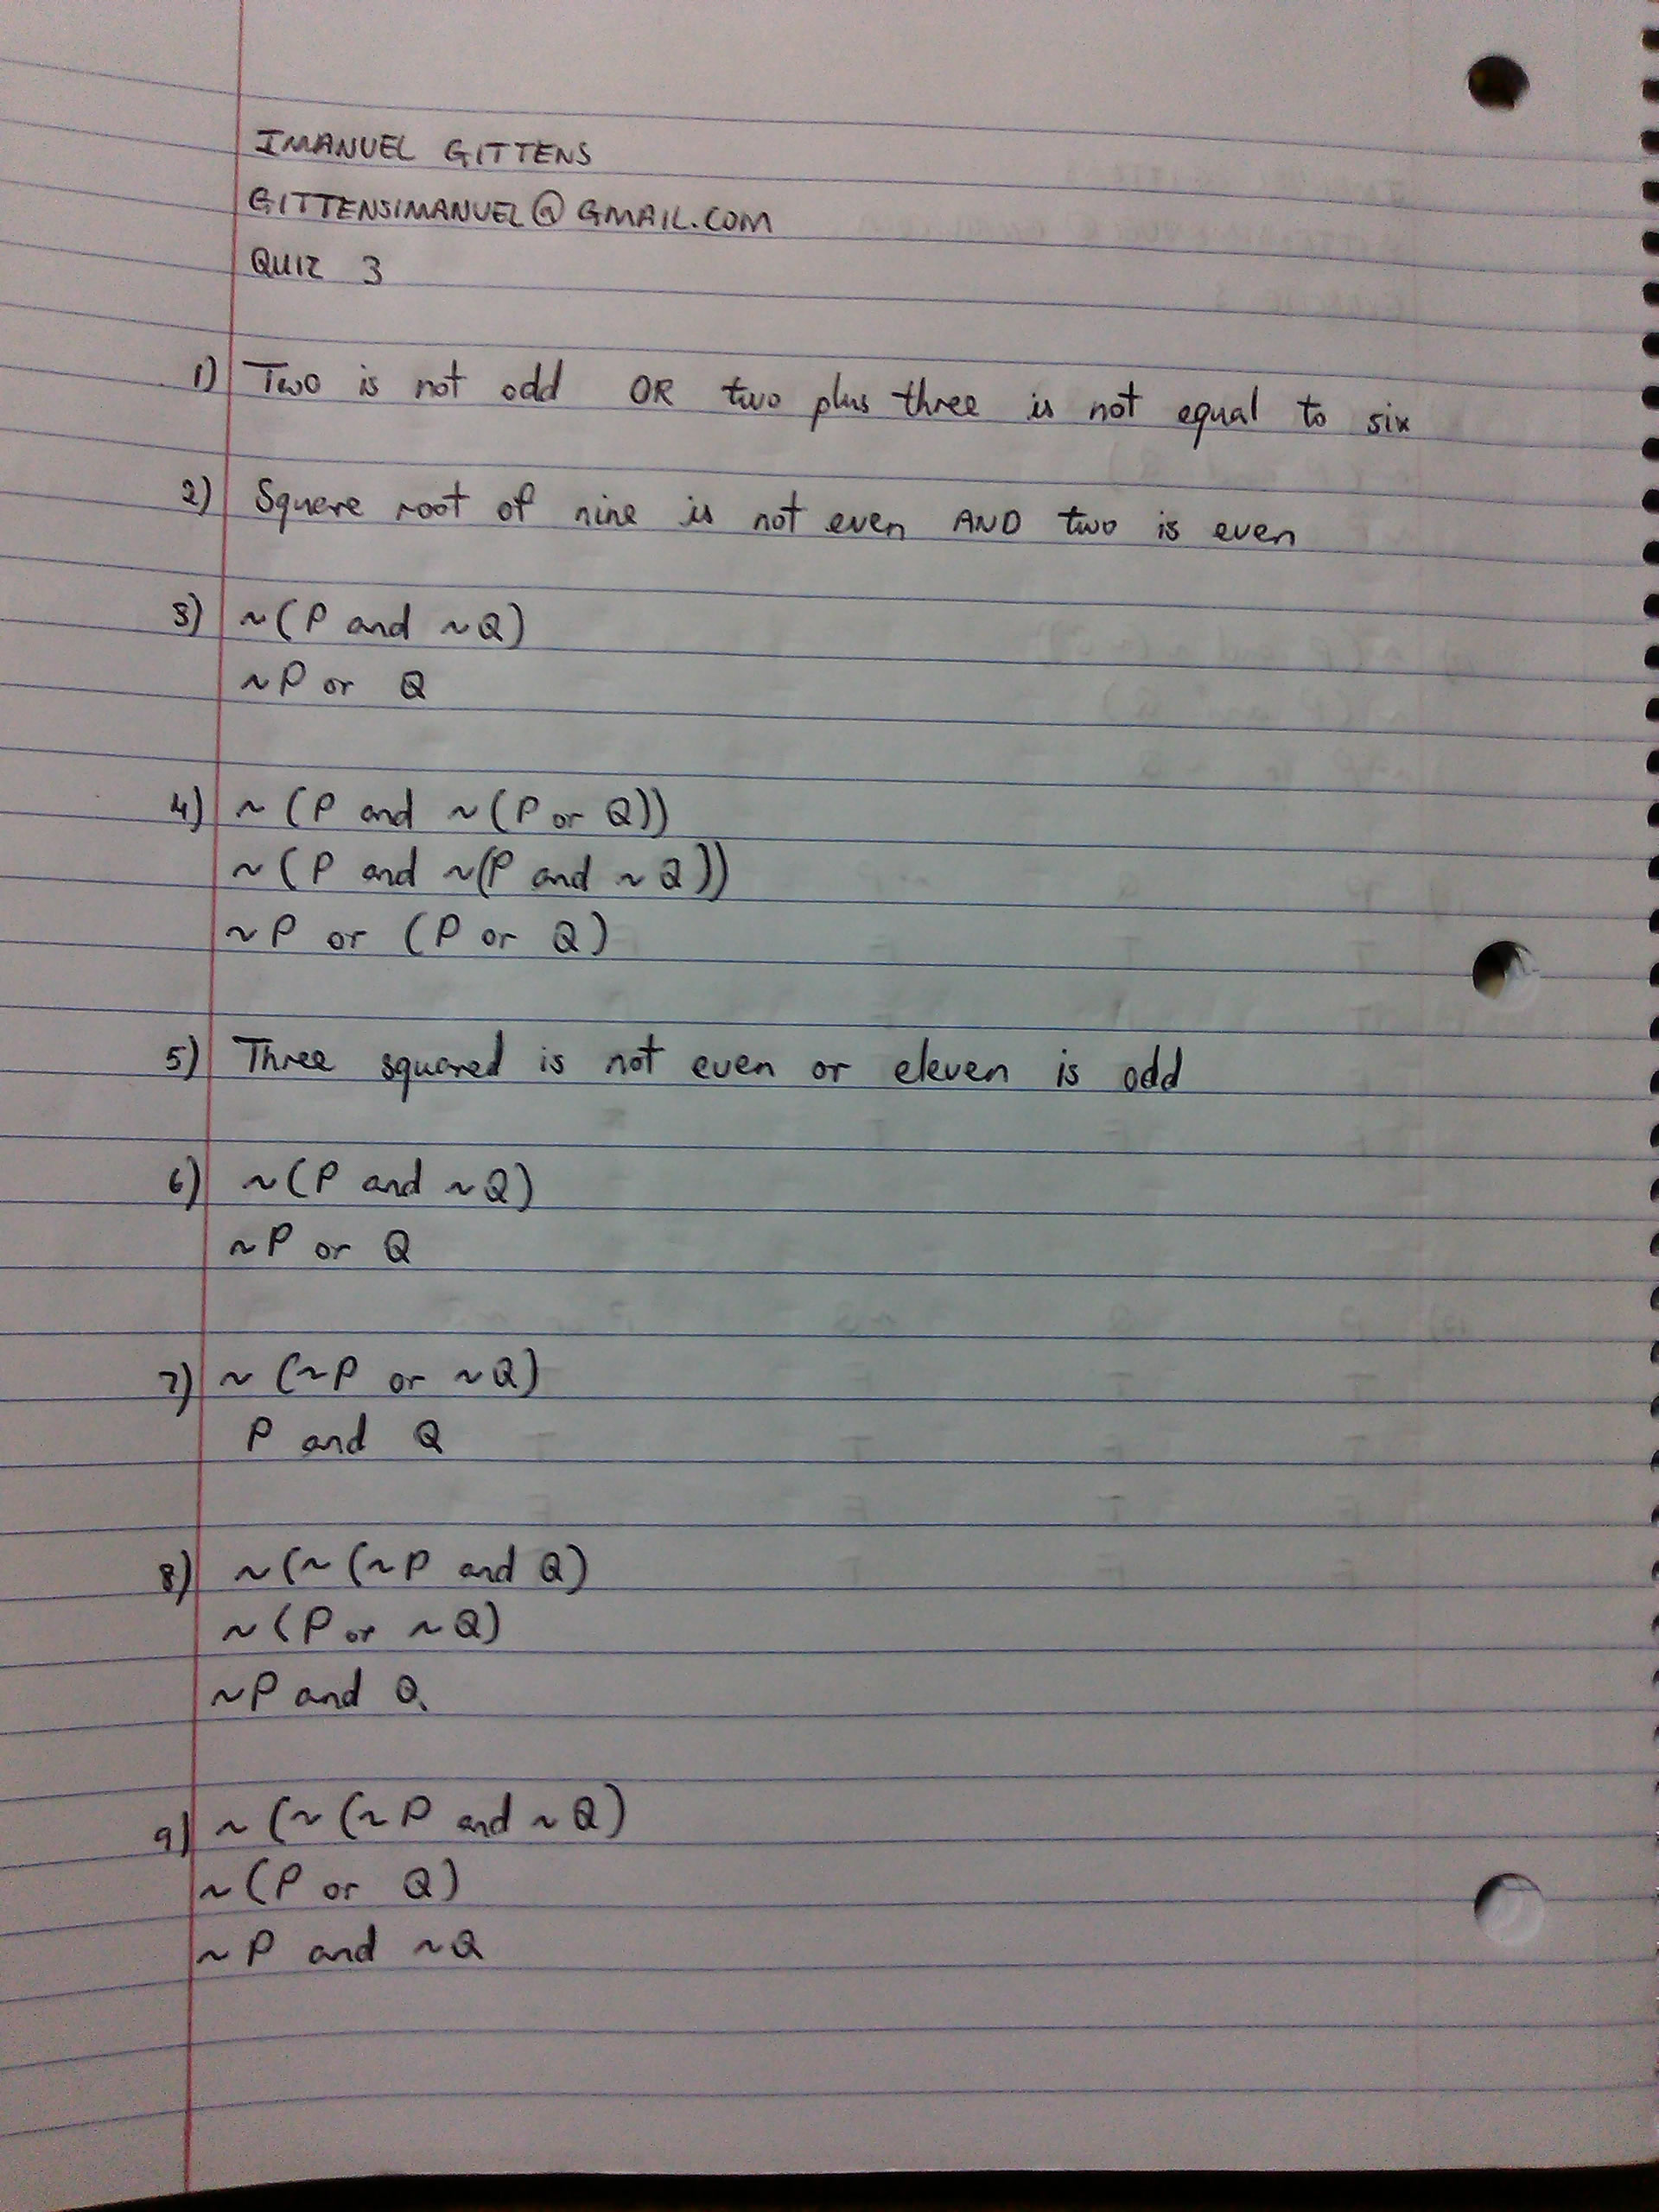 IMANUEL GITTENS
GITTENSIMANUEL@GMAIL.COM
QUIZ 3
1) Two is not odd OR two plus three is not equal to six
2) Square root of nine is not even AND two is even
3) ~(P and ~Q)
~P or Q
4) ~(P and ~(P or Q))
~(P and ~(P and ~Q))
~P or (P or Q)
5) Three squared is not even or eleven is odd
6) ~(P and ~Q)
~P or Q
7) ~(~P or ~Q)
P and Q
8) ~(~(~P and Q)
~(P or ~Q)
~P and Q
9) ~(~(~P and ~Q)
~(P or Q)
~P and ~Q